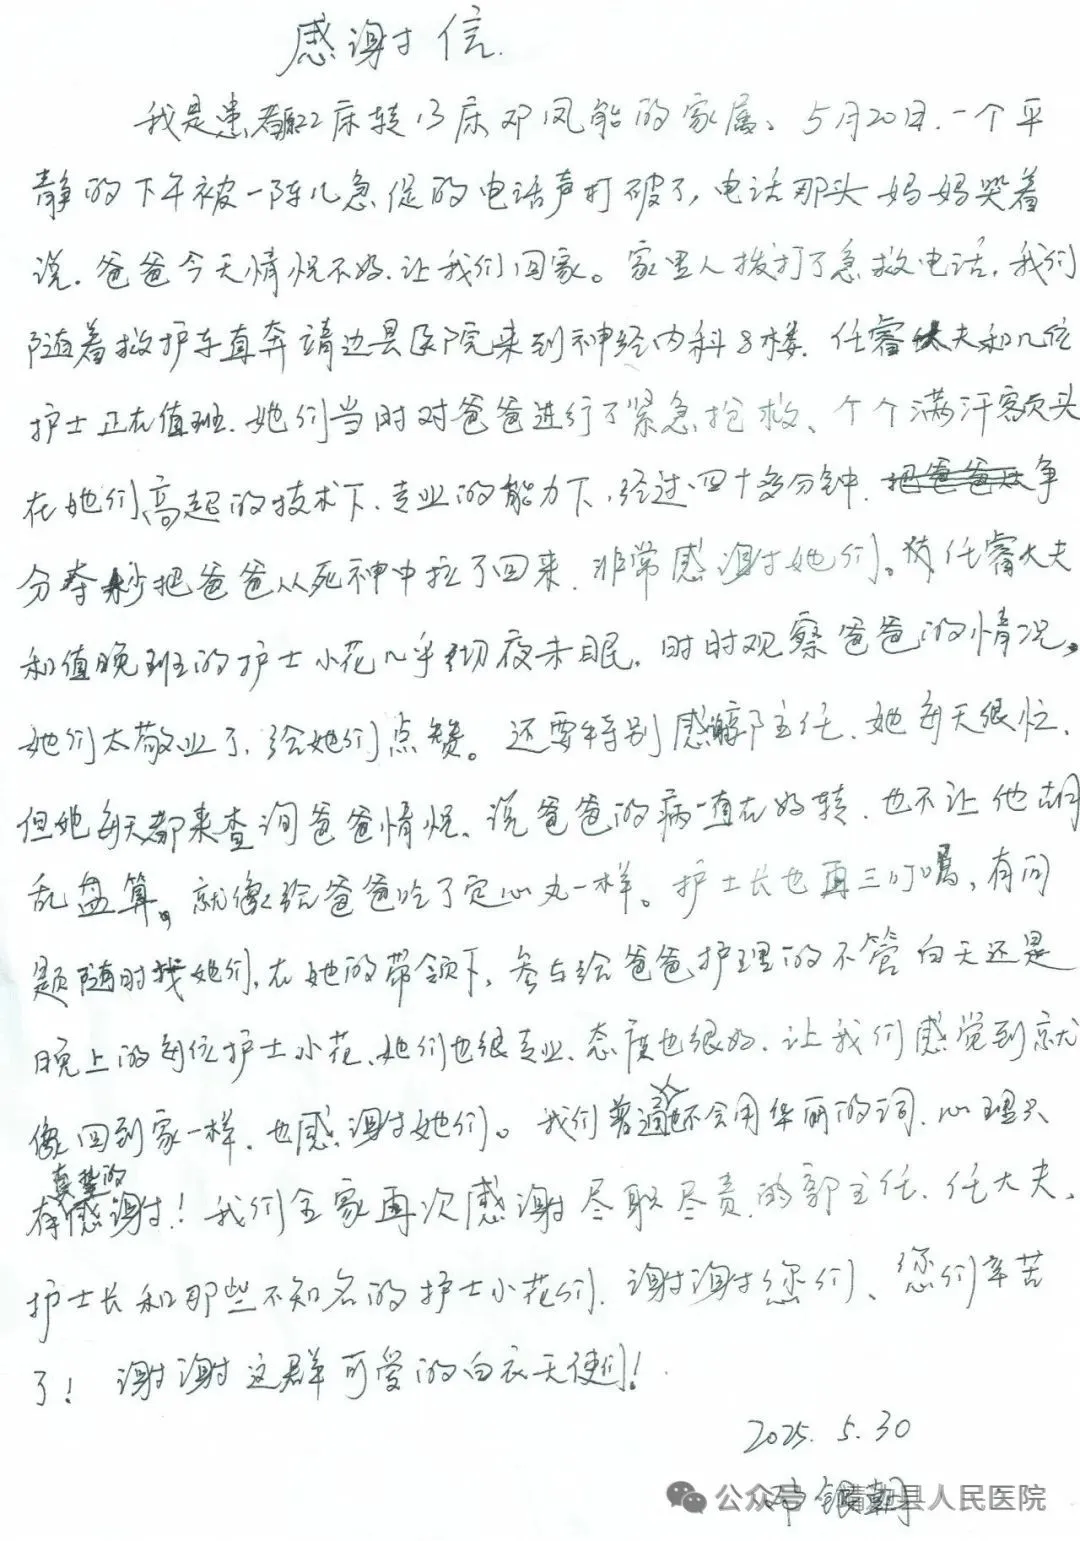 感谢信.
我是患者22床转13床邓凤船的家属、5月20日.一个平
静的下午被一阵儿急促的电话声打破了,电话那头妈妈哭着
说.爸爸今天情况不好.让我们回家。家里人拨打了急救电话,我们
随着救护车直奔靖边县医院来到神经内科8楼.任睿大夫和几位
护士正在值班.她们当时对爸爸进行了紧急抢救、个个满汗额头
在她们高超的技术下、专业的能力下,经过四十多分钟.争
分夺秒把爸爸从死神中拉了回来.非常感谢她们。任睿大夫
和值晚班的护士小花几乎彻夜未眠.时时观察爸爸的情况,
她们太敬业了,给她们点赞。还要特别感谢郭主任.她每天很忙.
但她每天都来查询爸爸情况、说爸爸的病一直在好转.也不让他胡
乱盘算。就像给爸爸吃了定心丸一样。护士长也再三叮嘱,有问
题随时找她们,在她的带领下,参与给爸爸护理的不管白天还是
晚上的每位护士小花、她们也很专业、态度也很好.让我们感觉到就
像回到家一样.也感谢她们。我们普通不会用华丽的词.心理只
有真挚的感谢!我们全家再次感谢尽职尽责的郭主任.任大夫、
护士长和那些不知名的护士小花们.谢谢您们、您们辛苦
了!谢谢这群可爱的白衣天使们!
2025.5.30
邓银朝
公众号 靖边县人民医院